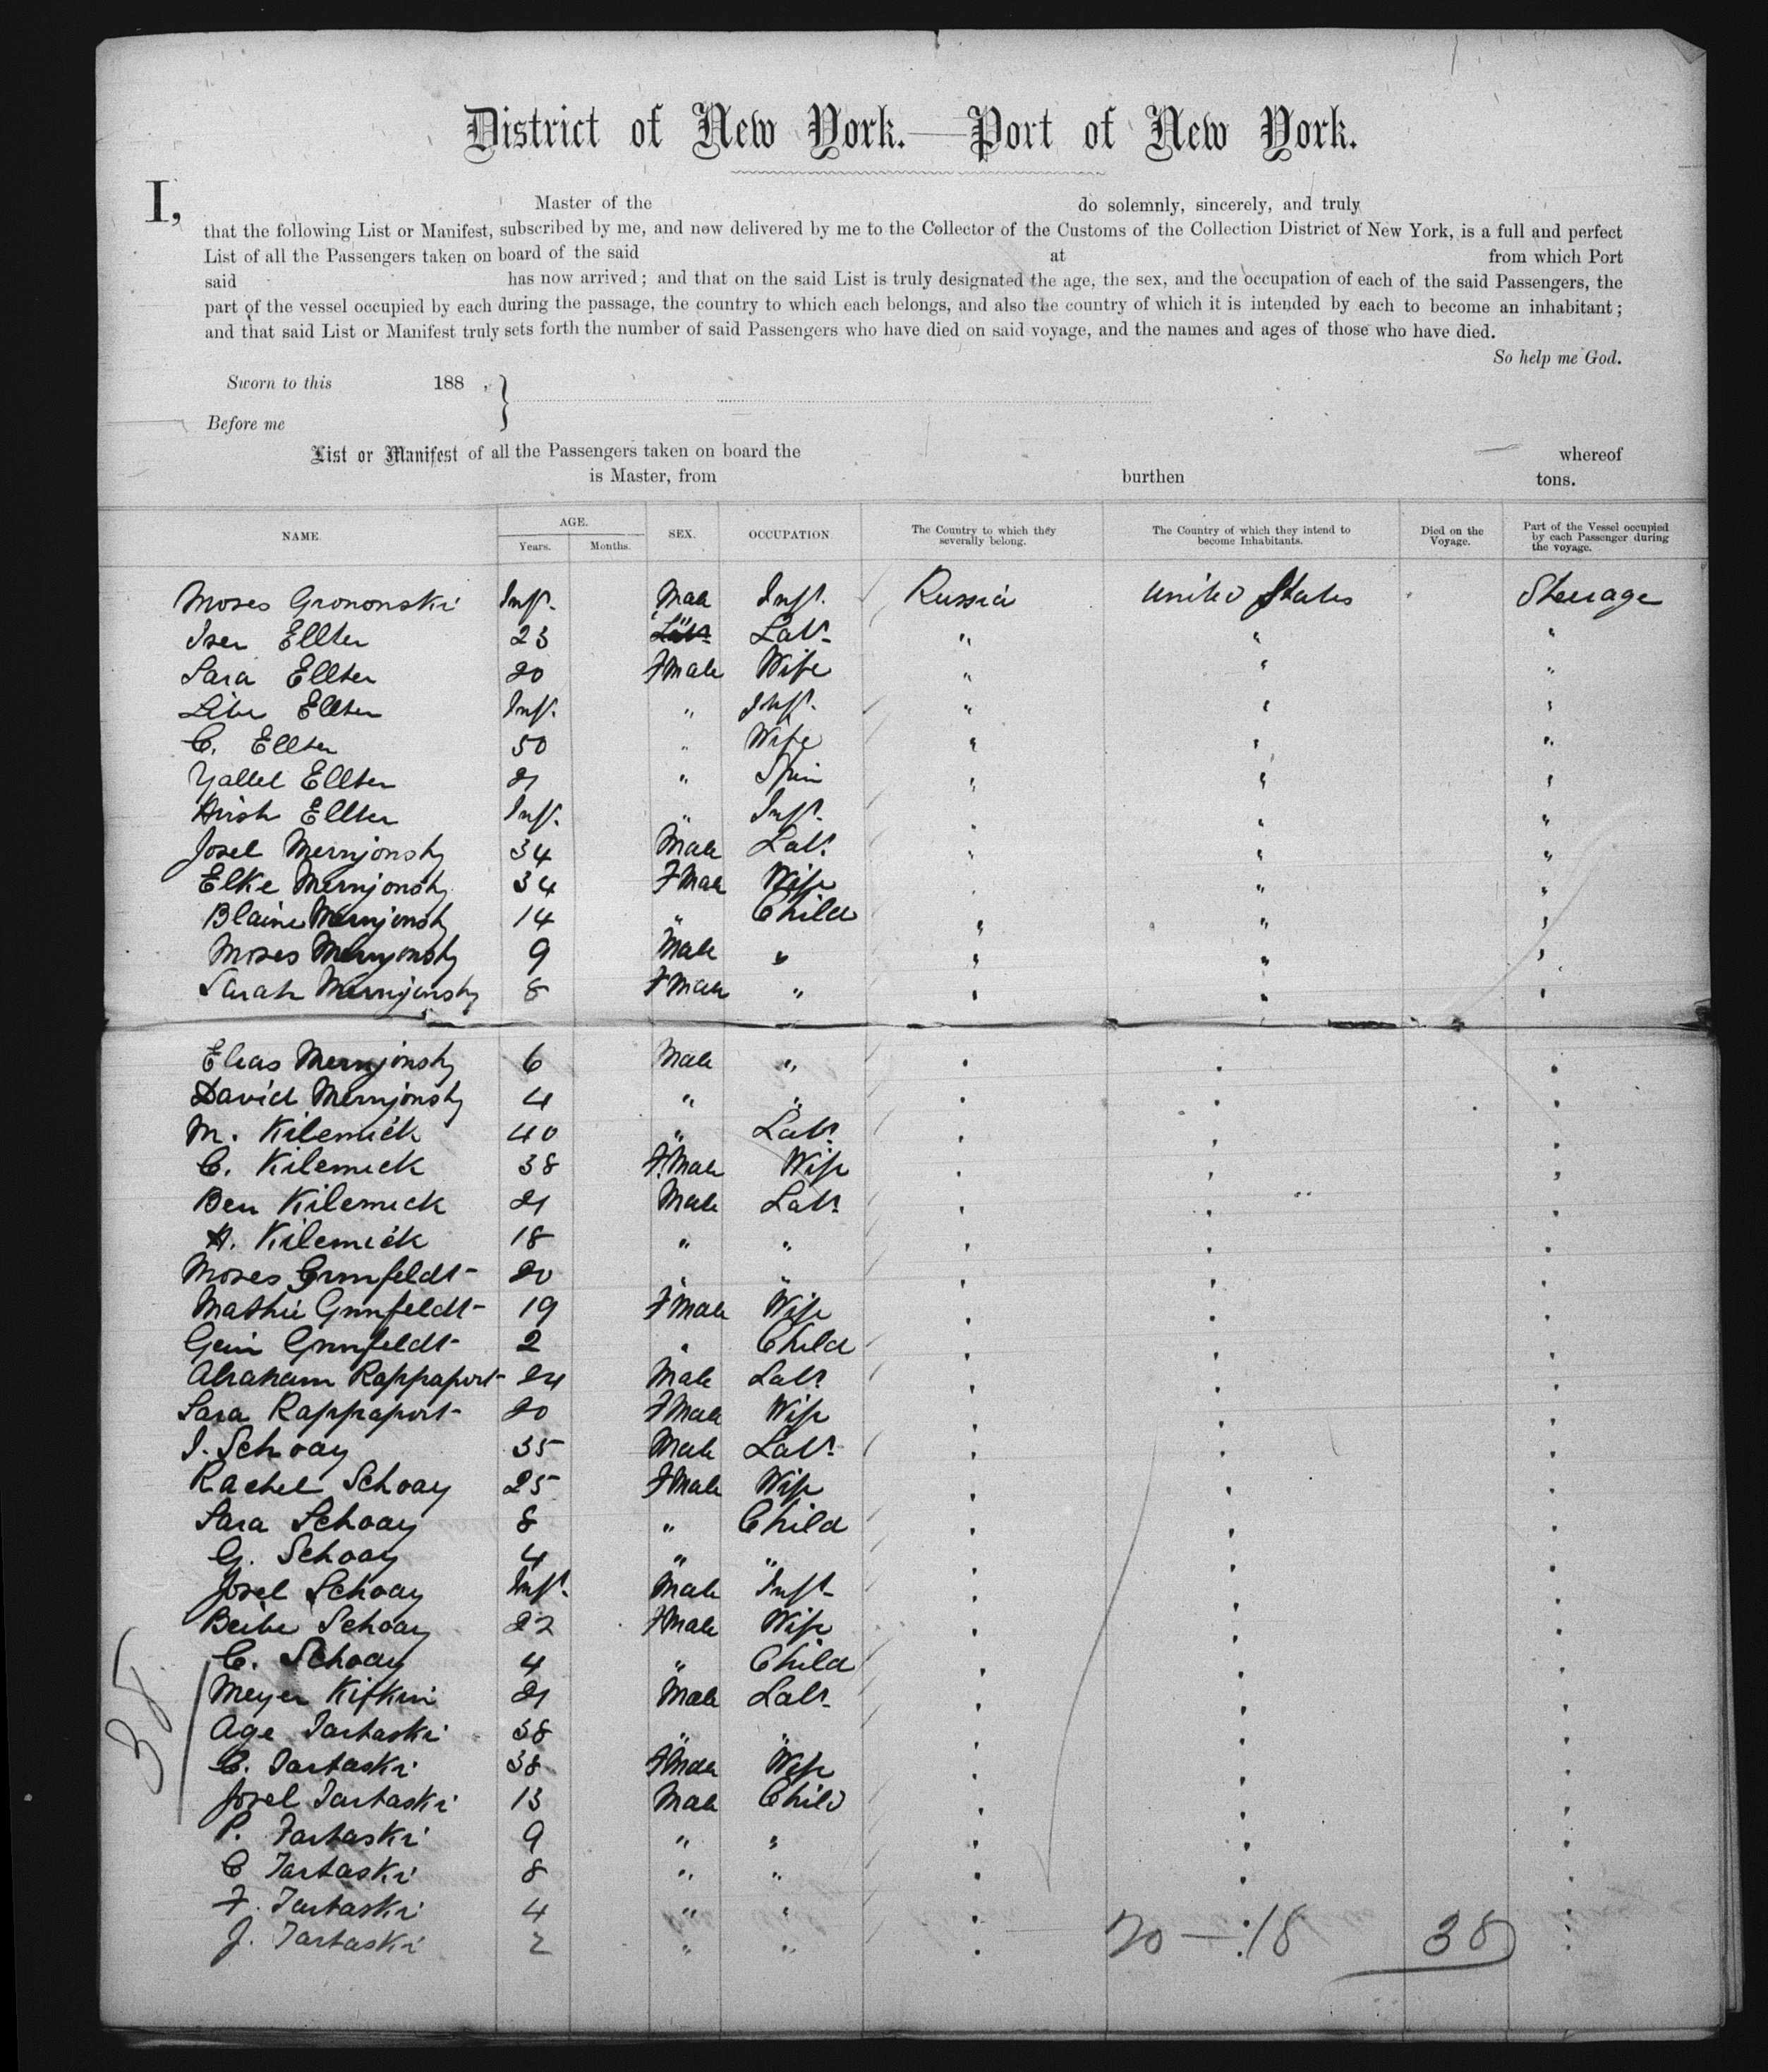 District of New York.—Port of New York.
I, Master of the do solemnly, sincerely, and truly
that the following List or Manifest, subscribed by me, and now delivered by me to the Collector of the Customs of the Collection District of New York, is a full and perfect
List of all the Passengers taken on board of the said at from which Port
said has now arrived; and that on the said List is truly designated the age, the sex, and the occupation of each of the said Passengers, the
part of the vessel occupied by each during the passage, the country to which each belongs, and also the country of which it is intended by each to become an inhabitant;
and that said List or Manifest truly sets forth the number of said Passengers who have died on said voyage, and the names and ages of those who have died.
So help me God.
Sworn to this 188 ,
Before me
List or Manifest of all the Passengers taken on board the whereof
is Master, from burthen tons.
NAME. AGE. Years. Months. SEX. OCCUPATION. The Country to which they severally belong. The Country of which they intend to become Inhabitants. Died on the Voyage. Part of the Vessel occupied by each Passenger during the voyage.
Moses Grononski Inft. Male Inft. Russia United States Steerage
Iser Ellter 23 " Labr. " " "
Sara Ellter 20 Fmale Wife " " "
Libe Ellter Inft. " Inft. " " "
C. Ellter 50 " Wife " " "
Yallel Ellter 21 " Spin " " "
Hirsh Ellter Inft. " Inft. " " "
Josel Mernjonsky 34 Male Labr. " " "
Elke Mernjonsky 34 Fmale Wife " " "
Blaine Mernjonsky 14 " Child " " "
Moses Mernjonsky 9 Male " " " "
Sarah Mernjonsky 8 Fmale " " " "
Elias Mernjonsky 6 Male " " " "
David Mernjonsky 4 " " " " "
M. Kilemick 40 " Labr. " " "
C. Kilemick 38 F.Male Wife " " "
Ben Kilemick 21 Male Labr. " " "
H. Kilemick 18 " " " " "
Moses Grunfeldt 20 " " " " "
Mathie Grunfeldt 19 Fmale Wife " " "
Gein Grunfeldt 2 " Child " " "
Abraham Rappaport 24 Male Labr " " "
Sara Rappaport 20 Fmale Wife " " "
I. Schoay 35 Male Labr. " " "
Rachel Schoay 25 Fmale Wife " " "
Sara Schoay 8 " Child " " "
G. Schoay 4 " " " " "
Josel Schoay Inft. Male Inft " " "
Beibe Schoay 22 Fmale Wife " " "
C. Schoay 4 " Child " " "
Meyer Kifkin 21 Male Labr. " " "
Age Tartaski 38 " " " " "
C. Tartaski 38 Fmale Wife " " "
Josel Tartaski 13 Male Child " " "
P. Tartaski 9 " " " " "
C Tartaski 8 " " " " "
F. Tartaski 4 " " " " "
J. Tartaski 2 " " " " "
38
20 — 18 38